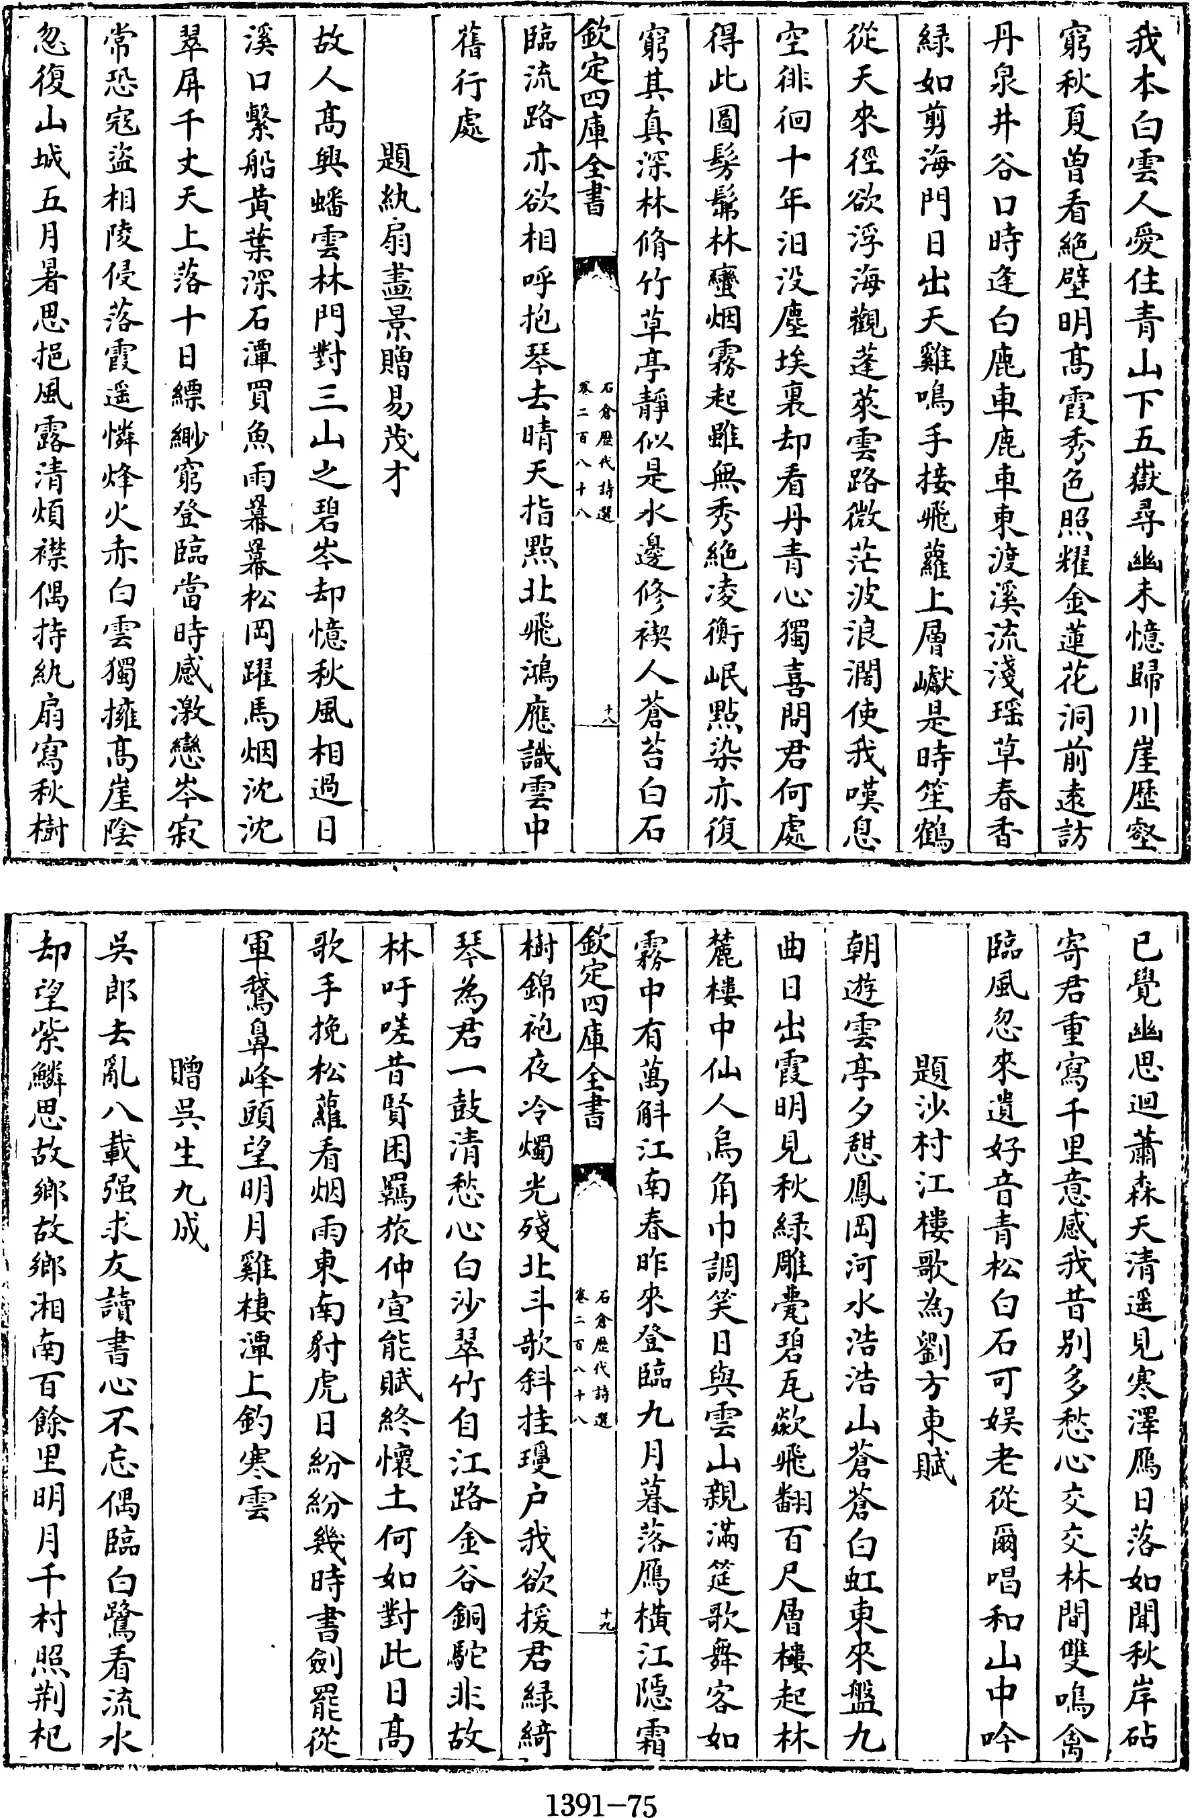 我本白雲人愛住青山下五嶽尋幽未憶歸川崖歴壑
窮秋夏曽看絶壁明髙霞秀色照耀金蓮花洞前逺訪
丹泉井谷口時逢白鹿車鹿車東渡溪流淺瑶草春香
緑如剪海門日出天雞鳴手接飛蘿上層巘是時笙鶴
從天來徑欲浮海觀蓬萊雲路微茫波浪濶使我嘆息
空徘徊十年汨没塵埃裏却看丹青心獨喜問君何處
得此圖髣髴林巒烟霧起雖無秀絶凌衡岷點染亦復
窮其真深林脩竹草亭靜似是水邊修禊人蒼苔白石
欽定四庫全書
石倉歴代詩選
卷二百八十八
十八
臨流路亦欲相呼抱琴去晴天指點北飛鴻應識雲中
舊行處
題紈扇畫景贈易茂才
故人髙興蟠雲林門對三山之碧岑却憶秋風相過日
溪口繫船黄葉深石潭買魚雨幕幕松岡躍馬烟沈沈
翠屏千丈天上落十日縹緲窮登臨當時感激戀岑寂
常恐宼盜相陵侵落霞遥憐烽火赤白雲獨擁髙崖陰
忽復山城五月暑思挹風露清煩襟偶持紈扇寫秋樹
已覺幽思迴蕭森天清遥見寒澤鴈日落如聞秋岸砧
寄君重寫千里意感我昔别多愁心交交林間雙鳴禽
臨風忽來遺好音青松白石可娱老從爾唱和山中吟
題沙村江樓歌為劉方東賦
朝遊雲亭夕憇鳳岡河水浩浩山蒼蒼白虹東來盤九
曲日出霞明見秋緑雕甍碧瓦歘飛翻百尺層樓起林
麓樓中仙人烏角巾調笑日與雲山親滿筵歌舞客如
霧中有萬斛江南春昨來登臨九月暮落鴈横江隠霜
欽定四庫全書
石倉歴代詩選
卷二百八十八
十九
樹錦袍夜冷燭光殘北斗欹斜挂瓊户我欲援君緑綺
琴為君一鼓清愁心白沙翠竹自江路金谷銅駝非故
林吁嗟昔賢困羈旅仲宣能賦終懷土何如對此日髙
歌手挽松蘿看烟雨東南豺虎日紛紛幾時書劍罷從
軍鵞鼻峰頭望明月雞棲潭上釣寒雲
贈吳生九成
吳郎去亂八載强求友讀書心不忘偶臨白鷺看流水
却望紫鱗思故鄉故鄉湘南百餘里明月千村照荆杞
1391-75